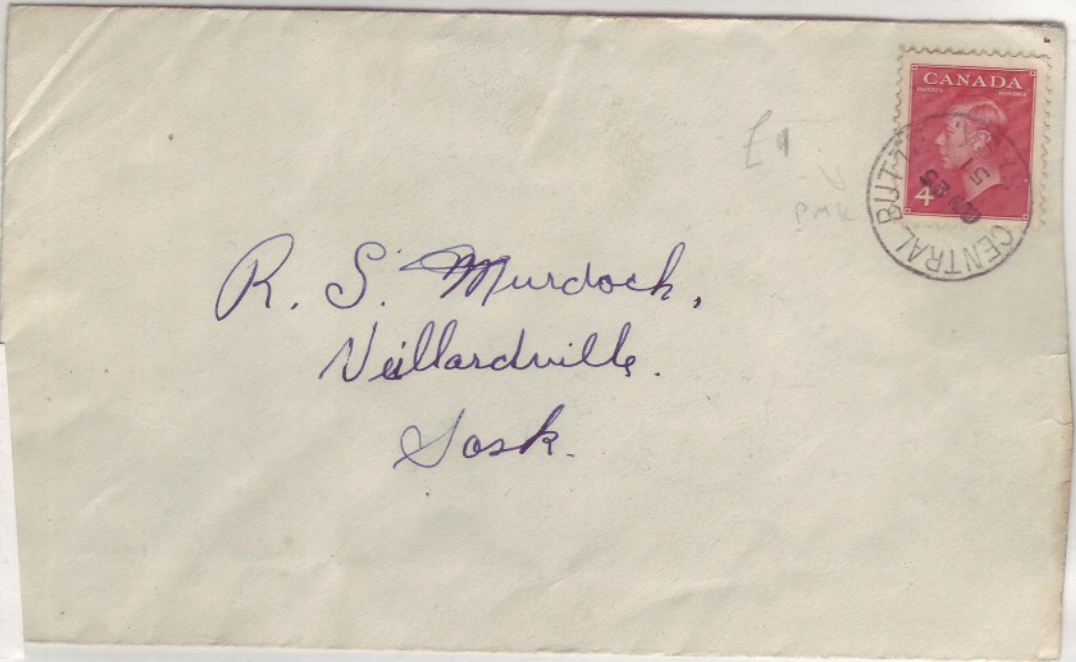 CANADA
POSTES POSTAGE
4
CENTRAL BUTTE
51
E9
PMK
R. S. Murdock,
Veillardville.
Sask.